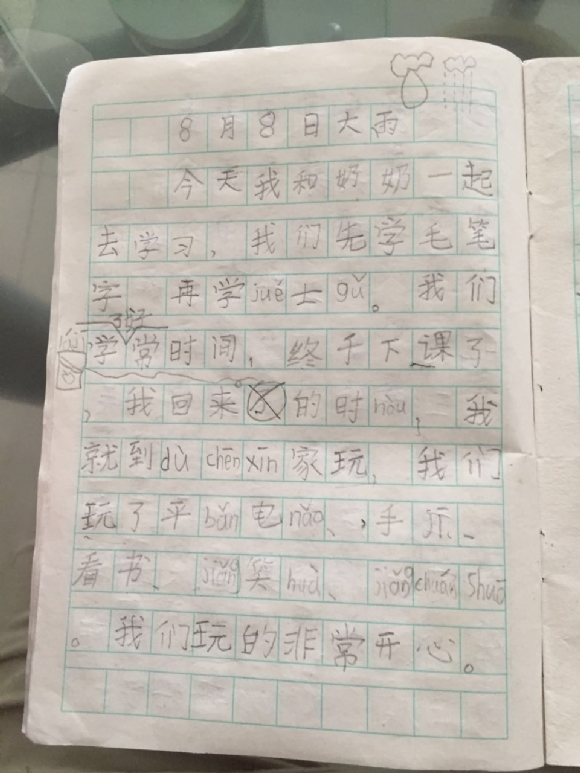 8月8日大雨
今天我和奶奶一起
去学习，我们先学毛笔
字 再学jué士gǔ。我们
学了好常时间，终于下课了
，我回来的时hòu，我
就到dù chēn xīn家玩，我们
玩了平bǎn电nǎo、手
看书、jiǎng笑huà、jiǎng chuán shuō
。我们玩的非常开心。